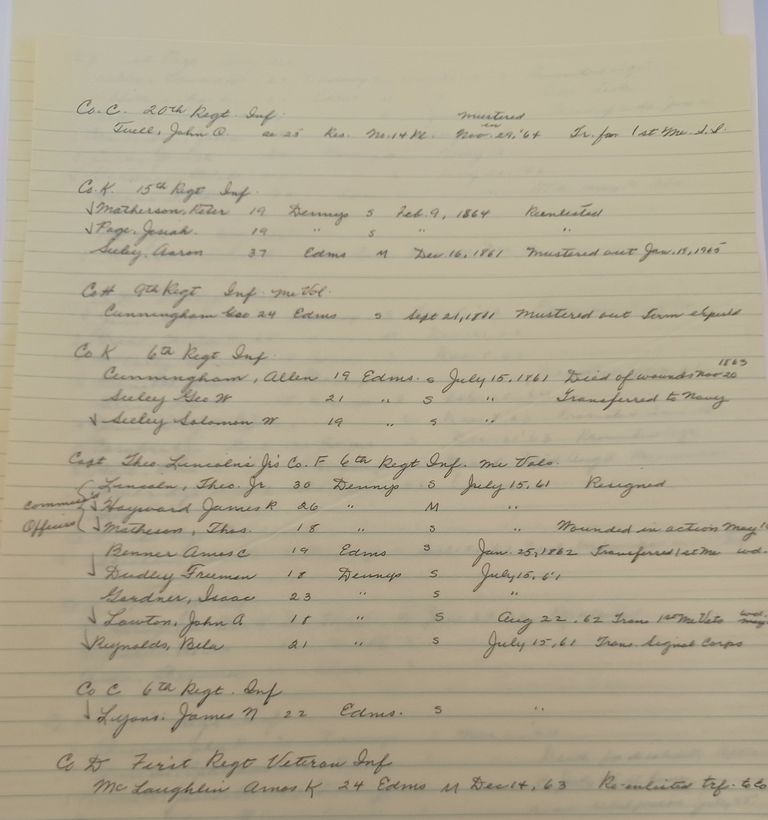 Co. C. 20th Regt Inf.
mustered
in
Tuell, John O. ae 25 Res. No. 14 Pl. Nov. 29, '64 Tr. fm 1st Me. S.S.
Co. K. 15th Regt Inf.
√ Matherson, Peter 19 Dennys S Feb. 9, 1864 Reenlisted
√ Page, Josiah. 19 " S " "
Seeley, Aaron 37 Edms M Dec. 16, 1861 Mustered out Jan. 18, 1965
Co H 9th Regt Inf. Me Vol.
Cunningham Geo 24 Edms S Sept 21, 1861 Mustered out Term expired
Co K 6th Regt Inf.
1863
Cunningham, Allen 19 Edms. S July 15, 1861 Died of wounds Nov 20
Seeley Geo W 21 " S " Transferred to Navy
√ Seeley Solomon W 19 " S "
Capt Theo. Lincoln's Jr's Co. F 6th Regt Inf. Me Vols.
Lincoln, Theo. Jr. 30 Dennys S July 15, 61 Resigned
√ Hayward James R 26 " M "
Officers √ Matheson, Thos. 18 " S " Wounded in action May
Benner Amos C 19 Edms S Jan. 25, 1862 Transferred 1st Me wd.
√ Dudley Freeman 18 Dennys S July 15, 61
Gardner, Isaac 23 " S "
√ Lawton, John A. 18 " S Aug 22, 62 Trans 1st Me Vets wd. May
√ Reynolds, Bela 21 " S July 15, 61 Trans. Signal Corps
Co C 6th Regt. Inf
√ Lyons. James N 22 Edms. S "
Co D First Regt Veteran Inf
McLaughlin Amos K 24 Edms M Dec 14, 63 Re-enlisted trf. to Co